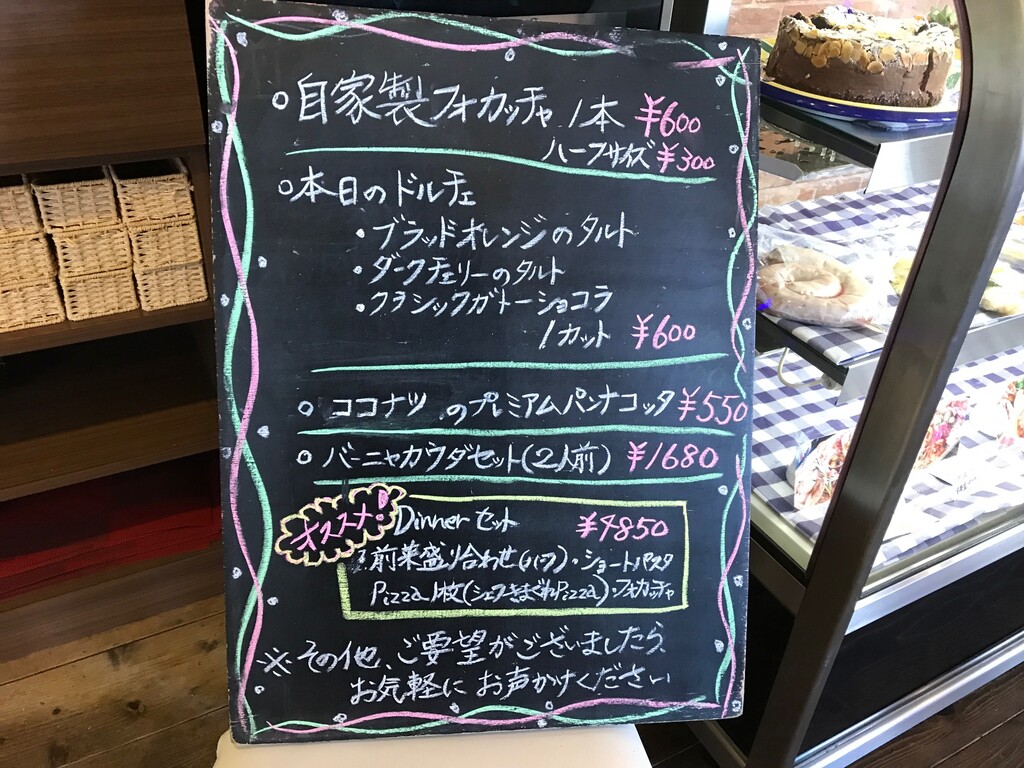 ○自家製フォカッチャ 1本 ¥600
ハーフサイズ ¥300
○本日のドルチェ
・ブラッドオレンジのタルト
・ダークチェリーのタルト
・クラシックガトーショコラ
1カット ¥600
○ココナツのプレミアムパンナコッタ ¥550
○バーニャカウダセット(2人前) ¥1680
オススメ! Dinnerセット ¥4850
前菜盛り合わせ・ショートパスタ
Pizza 1枚(シェフきまぐれPizza)・フォカッチャ
※その他、ご要望がございましたら、
お気軽にお声かけください